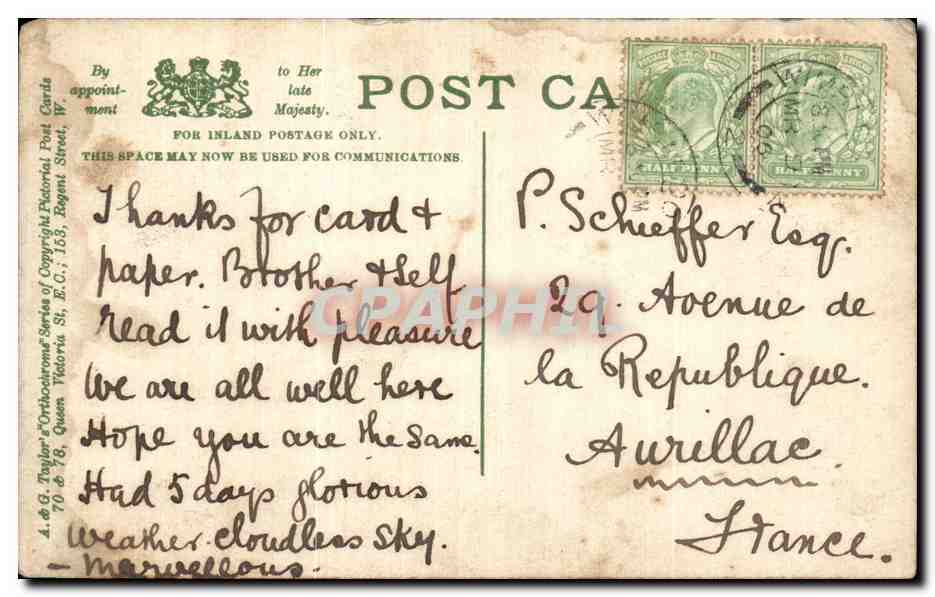 By appoint-ment
to Her late Majesty.
POST CA
FOR INLAND POSTAGE ONLY.
THIS SPACE MAY NOW BE USED FOR COMMUNICATIONS.
A. & G. Taylor's "Orthochrome" Series of Copyright Pictorial Post Cards
70 & 78, Queen Victoria St, E.C.; 153, Regent Street, W.
Thanks for card &
paper. Brother & self
read it with pleasure
We are all well here
Hope you are the same.
Had 5 days glorious
weather. cloudless sky.
– Marvellous.
P. Scheffer Esq.
29. Avenue de
la Republique.
Aurillac
France.
HALF PENN
HALFPENNY
CPAPHIL